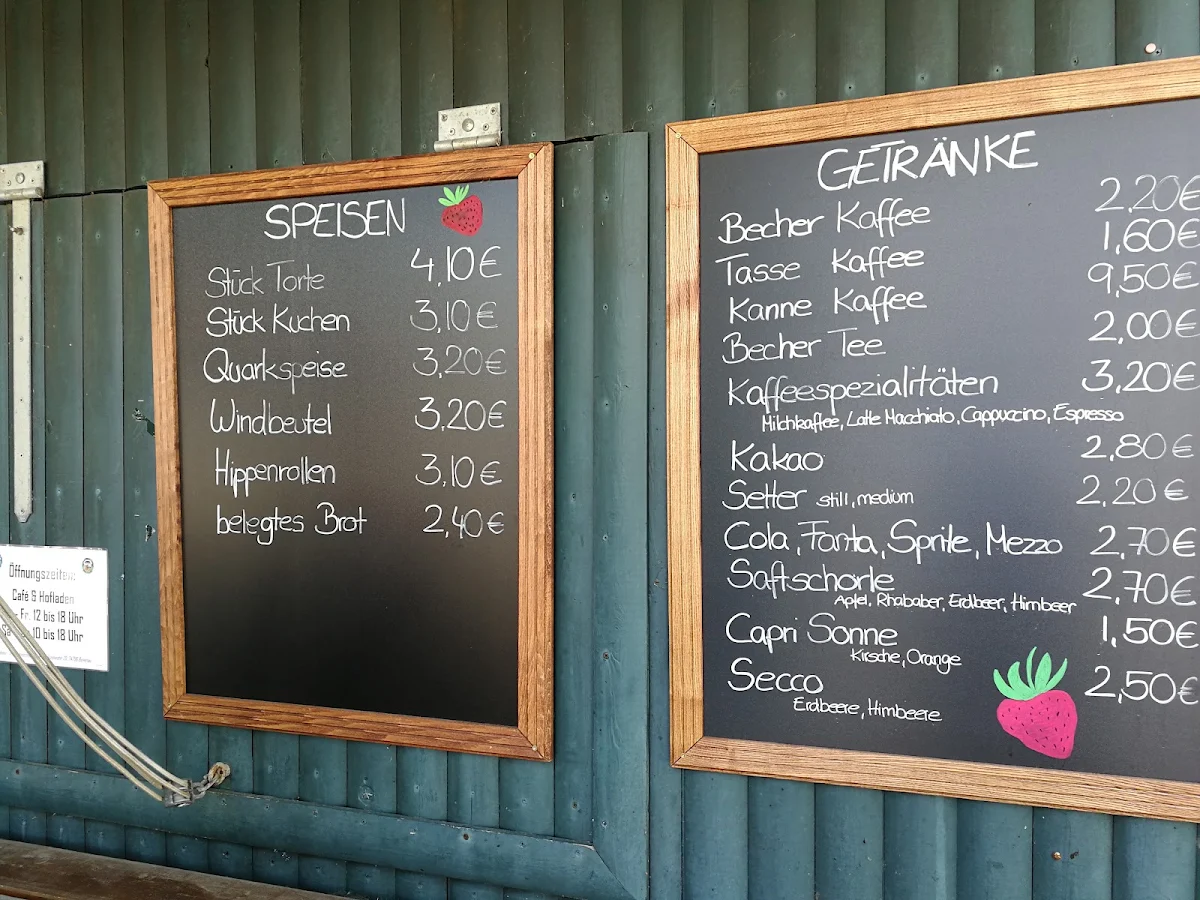 SPEISEN
Stück Torte 4,10€
Stück Kuchen 3,10€
Quarkspeise 3,20€
Windbeutel 3,20€
Hippenrollen 3,10€
belegtes Brot 2,40€
GETRÄNKE
Becher Kaffee 2,20€
Tasse Kaffee 1,60€
Kanne Kaffee 9,50€
Becher Tee 2,00€
Kaffeespezialitäten 3,20€
Milchkaffee, Latte Macchiato, Cappuccino, Espresso
Kakao 2,80€
Selter still, medium 2,20€
Cola, Fanta, Sprite, Mezzo 2,70€
Saftschorle 2,70€
Apfel, Rhababer, Erdbeer, Himbeer
Capri Sonne 1,50€
Kirsche, Orange
Secco 2,50€
Erdbeere, Himbeere
Öffnungszeiten:
Café & Hofladen
Fr. 12 bis 18 Uhr
Sa 10 bis 18 Uhr